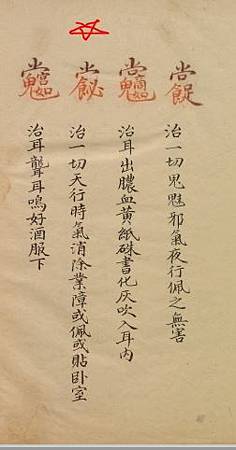 治一切鬼魅邪氣夜行佩之無害
治耳出膿血黃紙硃書化灰吹入耳內
治一切天行時氣消除業障或佩或貼卧室
治耳聾耳鳴好酒服下